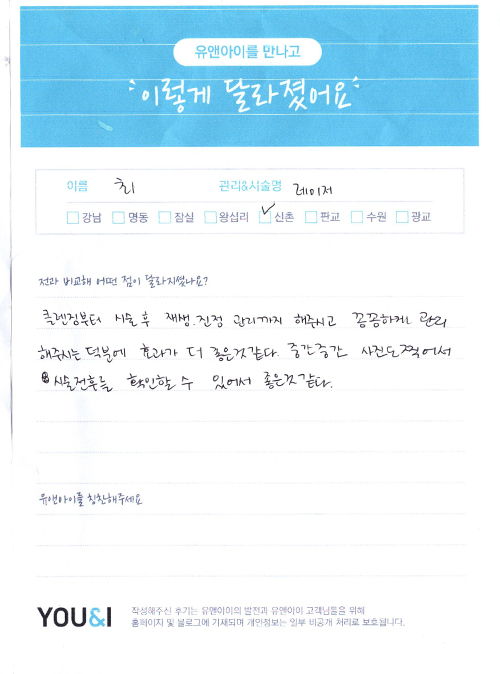 유앤아이를 만나고
이렇게 달라졌어요
이름 최 관리&시술명 레이저
강남 명동 잠실 왕십리 신촌 판교 수원 광교
전과 비교해 어떤 점이 달라지셨나요?
클렌징부터 시술 후 재생.진정 관리까지 해주시고 꼼꼼하게 관리
해주시는 덕분에 효과가 더 좋은것같다. 중간중간 사진도 찍어서
시술전후를 확인할 수 있어서 좋은것 같다.
유앤아이를 칭찬해주세요
YOU&I
작성해주신 후기는 유앤아이의 발전과 유앤아이 고객님들을 위해
홈페이지 및 블로그에 기재되며 개인정보는 일부 비공개 처리로 보호됩니다.